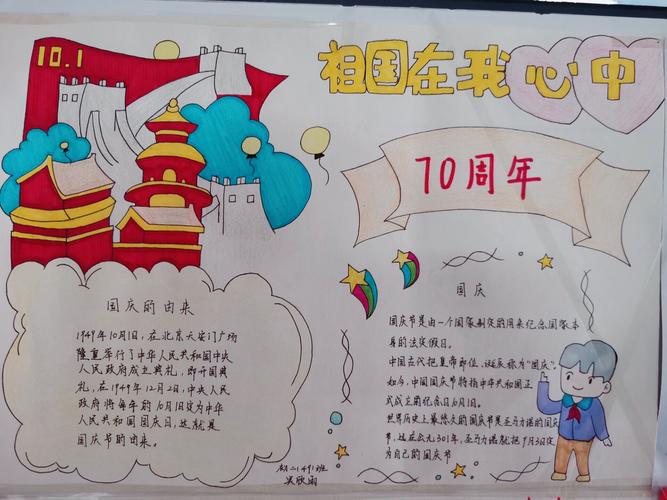 10.1
祖国在我心中
70周年
国庆的由来
1949年10月1日,在北京天安门广场
隆重举行了中华人民共和国中央
人民政府成立典礼,即开国典
礼,在1949年12月2日,中央人民
政府将每年的10月1日定为中华
人民共和国国庆日,这就是
国庆节的由来。
国庆
国庆节是由一个国家制定的用来纪念国家本
身的法定假日。
中国古代把皇帝即位、诞辰称为“国庆”。
如今,中国国庆节特指中华人民共和国正
式成立的纪念日10月1日。
世界历史上最悠久的国庆节是圣马力诺的国庆
节,远在公元301年,圣马力诺就把9月3日定
为自己的国庆节
149班
吴欣雨